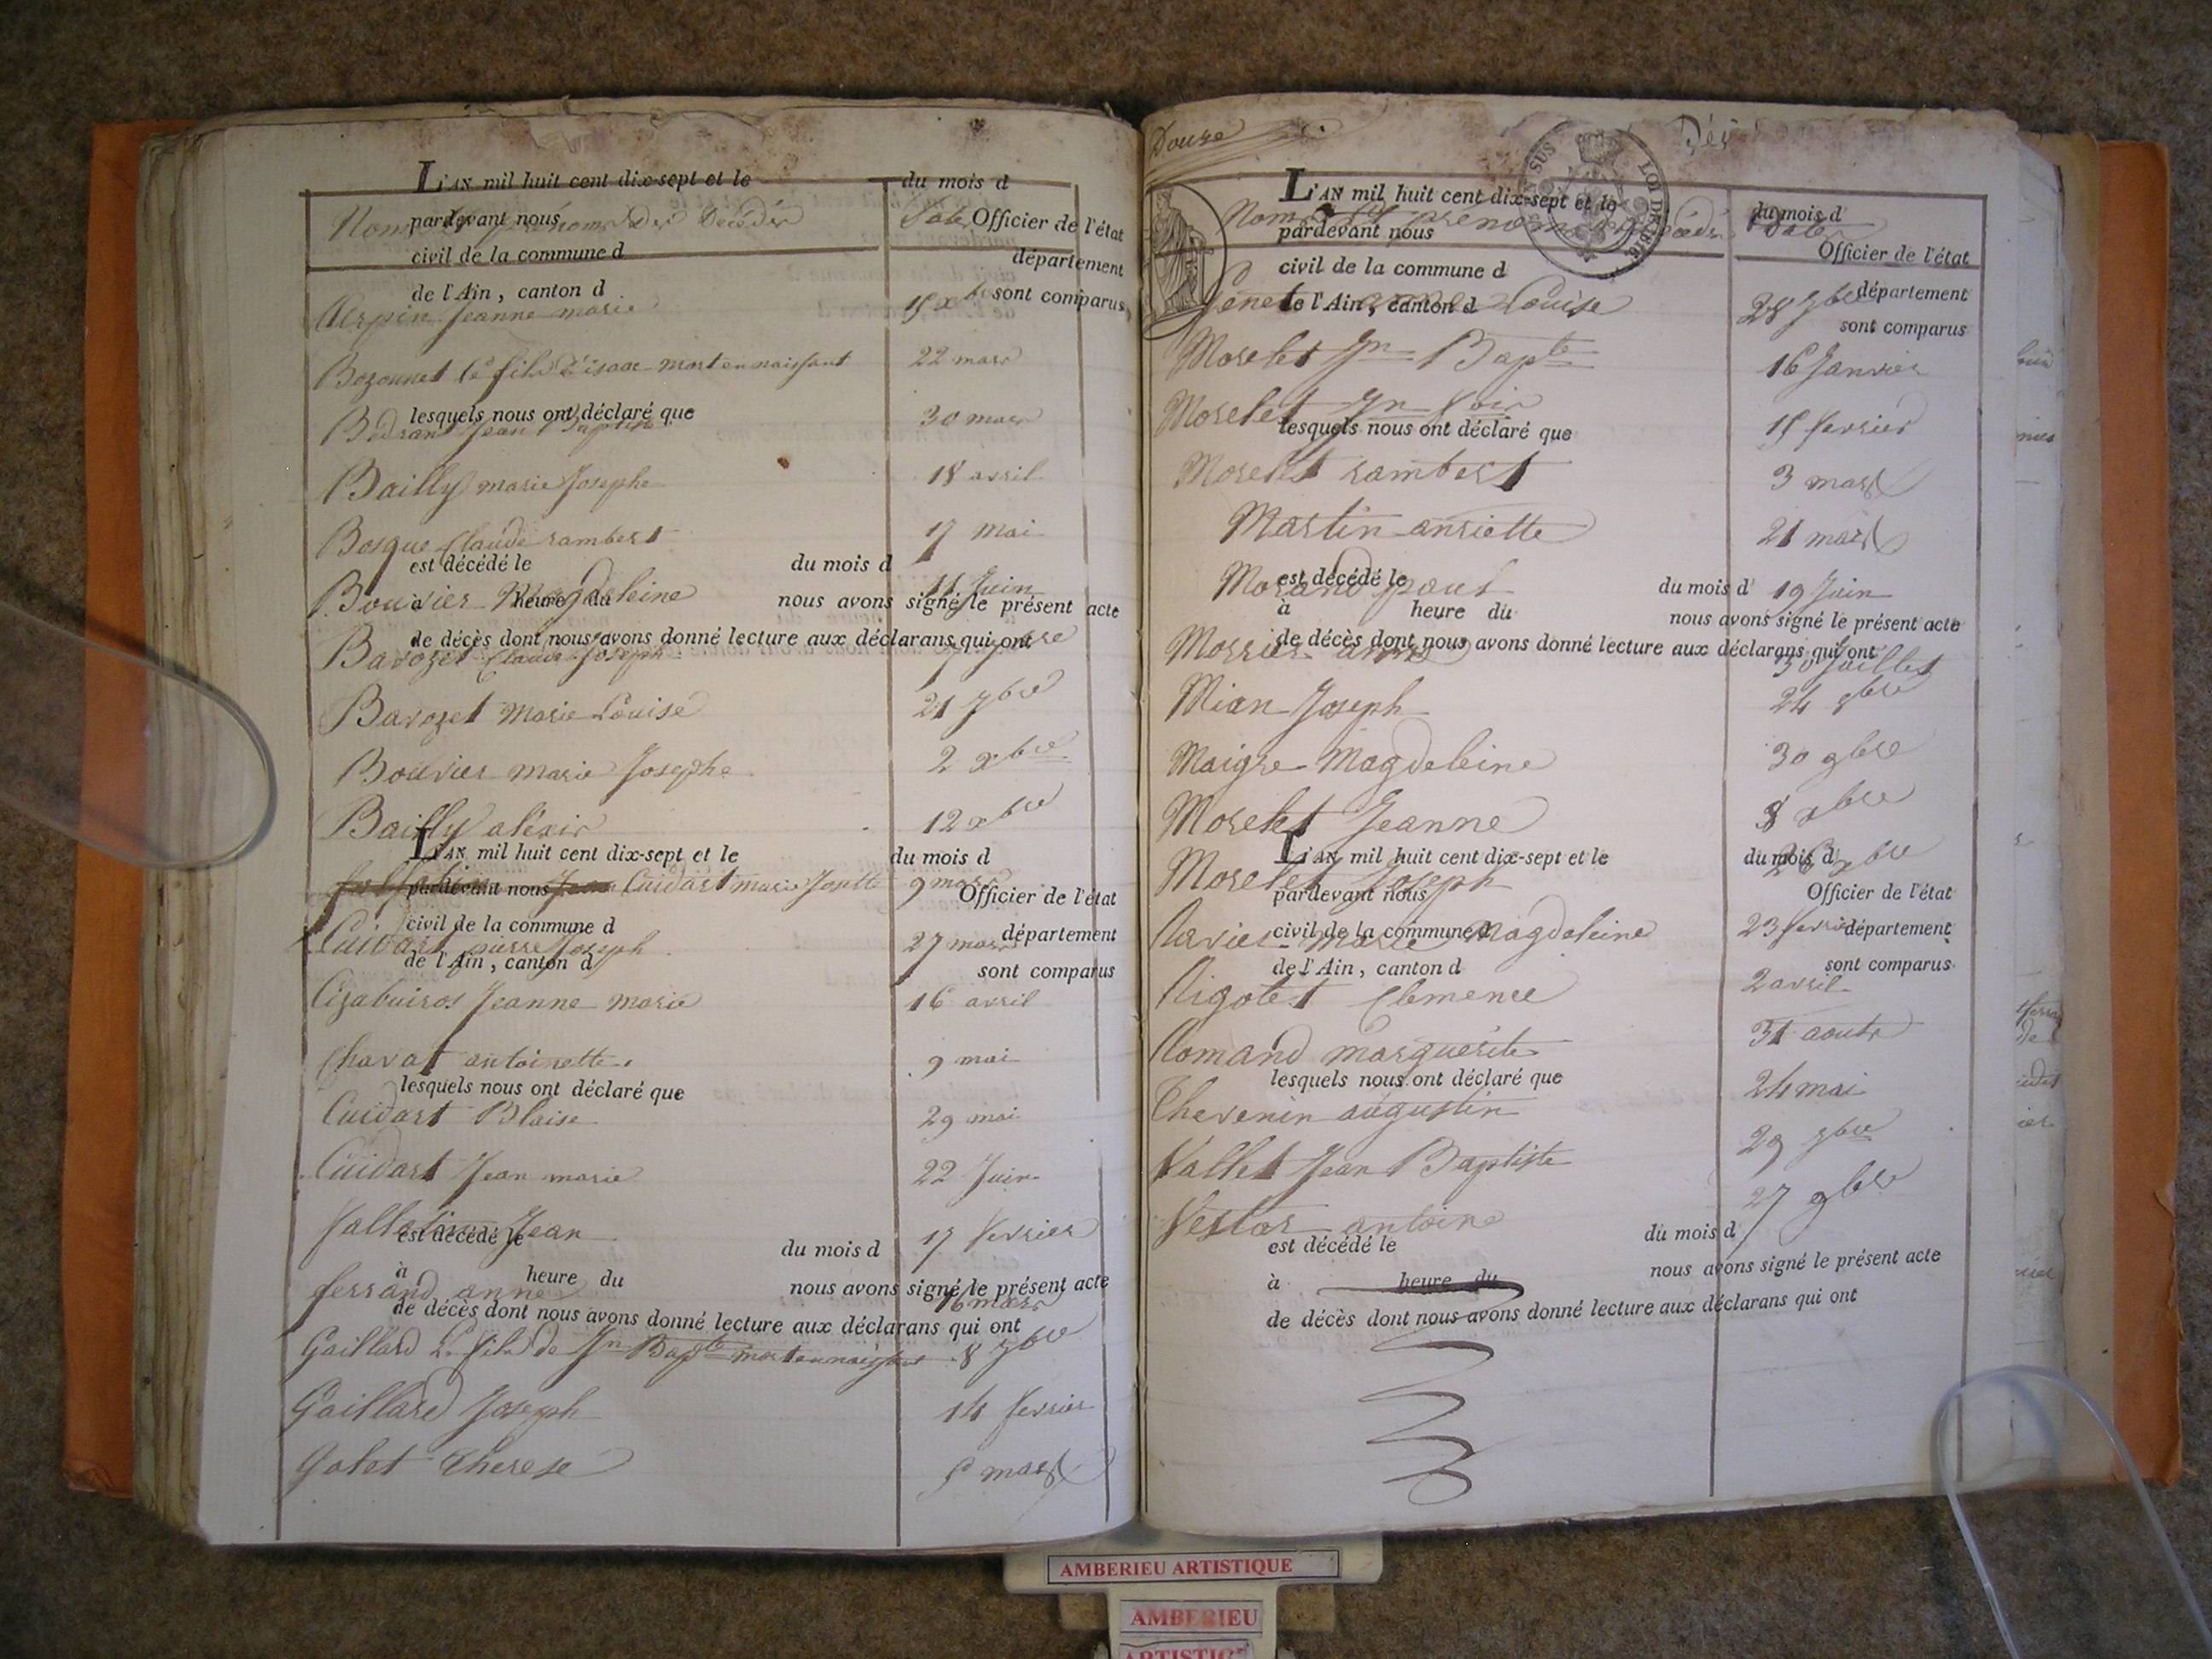 L'AN mil huit cent dix-sept et le du mois d
pardevant nous Officier de l'état
Noms et prénoms des Décédés Dates
civil de la commune d département
de l'Ain, canton d sont comparus
Jeanne marie 15 xbre
Bozonnet le fils d'isaac mort en naissant 22 mars
lesquels nous ont déclaré que
Jean Baptiste 30 mars
Bailly marie Josephe 18 avril
Bosque Claude rambert 17 mai
est décédé le du mois d
Bouvier Magdeleine 11 Juin
à heure du nous avons signé le présent acte
de décès dont nous avons donné lecture aux déclarans qui ont
Bavozet Claude Joseph
Bavozet Marie Louise 21 7bre
Bouvier marie Josephe 2 xbre
Bailly aléxis 12 xbre
L'AN mil huit cent dix-sept et le du mois d
pardevant nous Officier de l'état
Cuidart marie 9 mars
civil de la commune d département
Cuidart pierre Joseph 27 mars
de l'Ain, canton d sont comparus
Jeanne marie 16 avril
Chavat antoinette 9 mai
lesquels nous ont déclaré que
Cuidart Blaise 29 mai
Cuidart Jean marie 22 Juin
Jean 17 fevrier
est décédé le du mois d
à heure du nous avons signé le présent acte
ferrand anne 16 mars
de décès dont nous avons donné lecture aux déclarans qui ont
Gaillard le fils de Jn Bapte mort en naissant 8 7bre
Gaillard Joseph 14 fevrier
Golet Therese 5 mars
Douze
L'AN mil huit cent dix-sept et le du mois d
Noms et prenoms Dates
pardevant nous Officier de l'état
civil de la commune d département
de l'Ain, canton d sont comparus
Louise 28
Morelet Jn Bapte 16 Janvier
Morelet Jn 15 fevrier
lesquels nous ont déclaré que
Morelet rambert 3 mars
Martin anriette 21 mars
est décédé le du mois d
Morand 19 Juin
à heure du nous avons signé le présent acte
de décès dont nous avons donné lecture aux déclarans qui ont
anne 30 Juillet
Mian Joseph 24 8bre
Maigre Magdeleine 30 9bre
Morelet Jeanne 8 xbre
L'AN mil huit cent dix-sept et le du mois d
Morelet Joseph 26 xbre
pardevant nous Officier de l'état
civil de la commune d département
Marie Magdeleine 23
de l'Ain, canton d sont comparus
Rigolet Clemence 2 avril
Romand marguerite 31 aout
lesquels nous ont déclaré que
Thevenin augustin 24 mai
Vallet Jean Baptiste 29
antoine 27 9bre
est décédé le du mois d
à heure du nous avons signé le présent acte
de décès dont nous avons donné lecture aux déclarans qui ont
AMBERIEU ARTISTIQUE
AMBERIEU